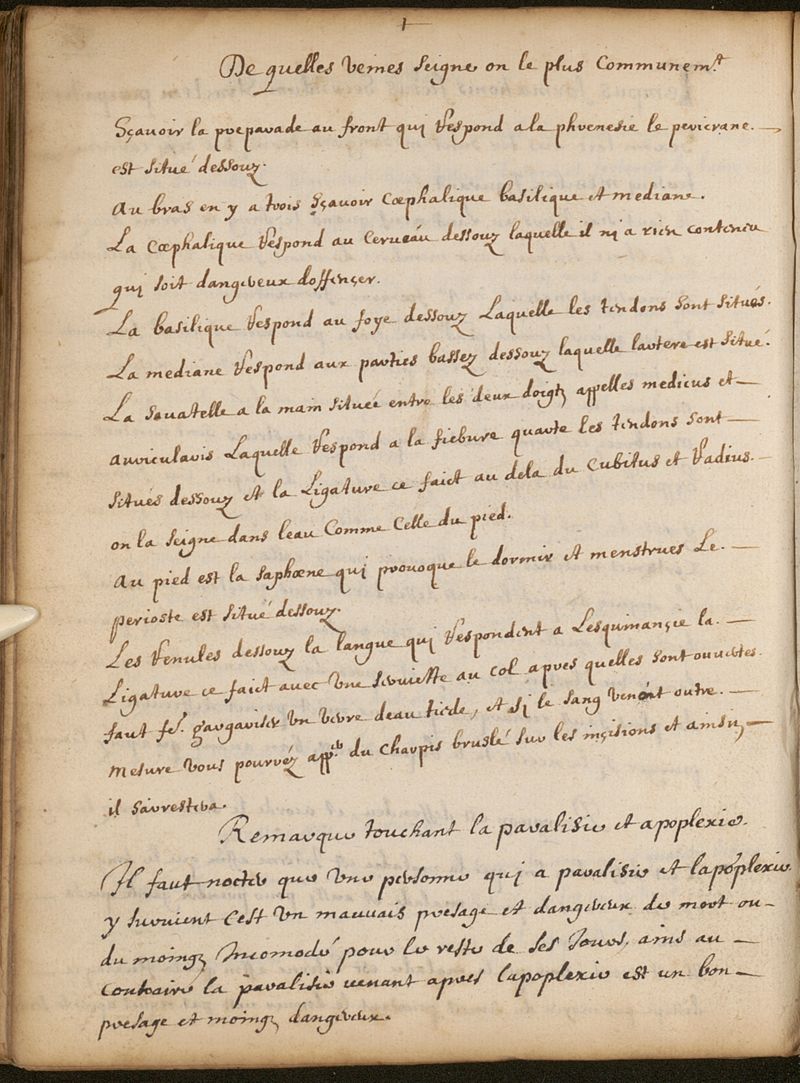 De quelles veines seigne on le plus communem.t
Sçavoir la preparade au front qui respond a la phrenesie le pericrane.
est situé dessouz.
Au bras en y a trois Sçavoir Cœphalique basilique et mediane.
La Cœphalique respond au Cerveau dessouz laquelle il ni a rien contenu
qui soit dangereux doffencer.
La basilique respond au foye dessouz Laquelle les tendons sont situés.
La mediane respond aux parties bassez dessouz laquelle lartere est situé.
La Savatelle a la main située entre les deux doigtz appelles medicus et
auricularis Laquelle respond a la fiebure quarte les tendons sont
situés dessouz et la Ligature ce faict au dela du Cubitus et Radius.
on la seigne dans leau Comme Celle du pied.
Au pied est la saphœne qui provoque le dormir et menstrues Le.
perioste est situé dessouz.
Les Venules dessouz la langue qui respondent a Lesquinançie la.
Ligature ce faict avec une serviette au col apres quelles sont ouvertes
faut fe.r gargariser un verre deau tiede, et si le sang venoit outre.
mesure vous pourvéz app.er du charpis bruslé sur les inçisions et ainsin
il sarrestera.
Remarque touchant la paralisie et apoplexie.
Il faut nocter que une personne qui a paralisie et lapoplexie
y survient Cest un mauvais presage et dangereux de mort ou
du moingz Incomodé pour le reste de ses Jours, ains au
contraire la paralisie venant apres lapoplexie est un bon
presage et moingz dangereux.